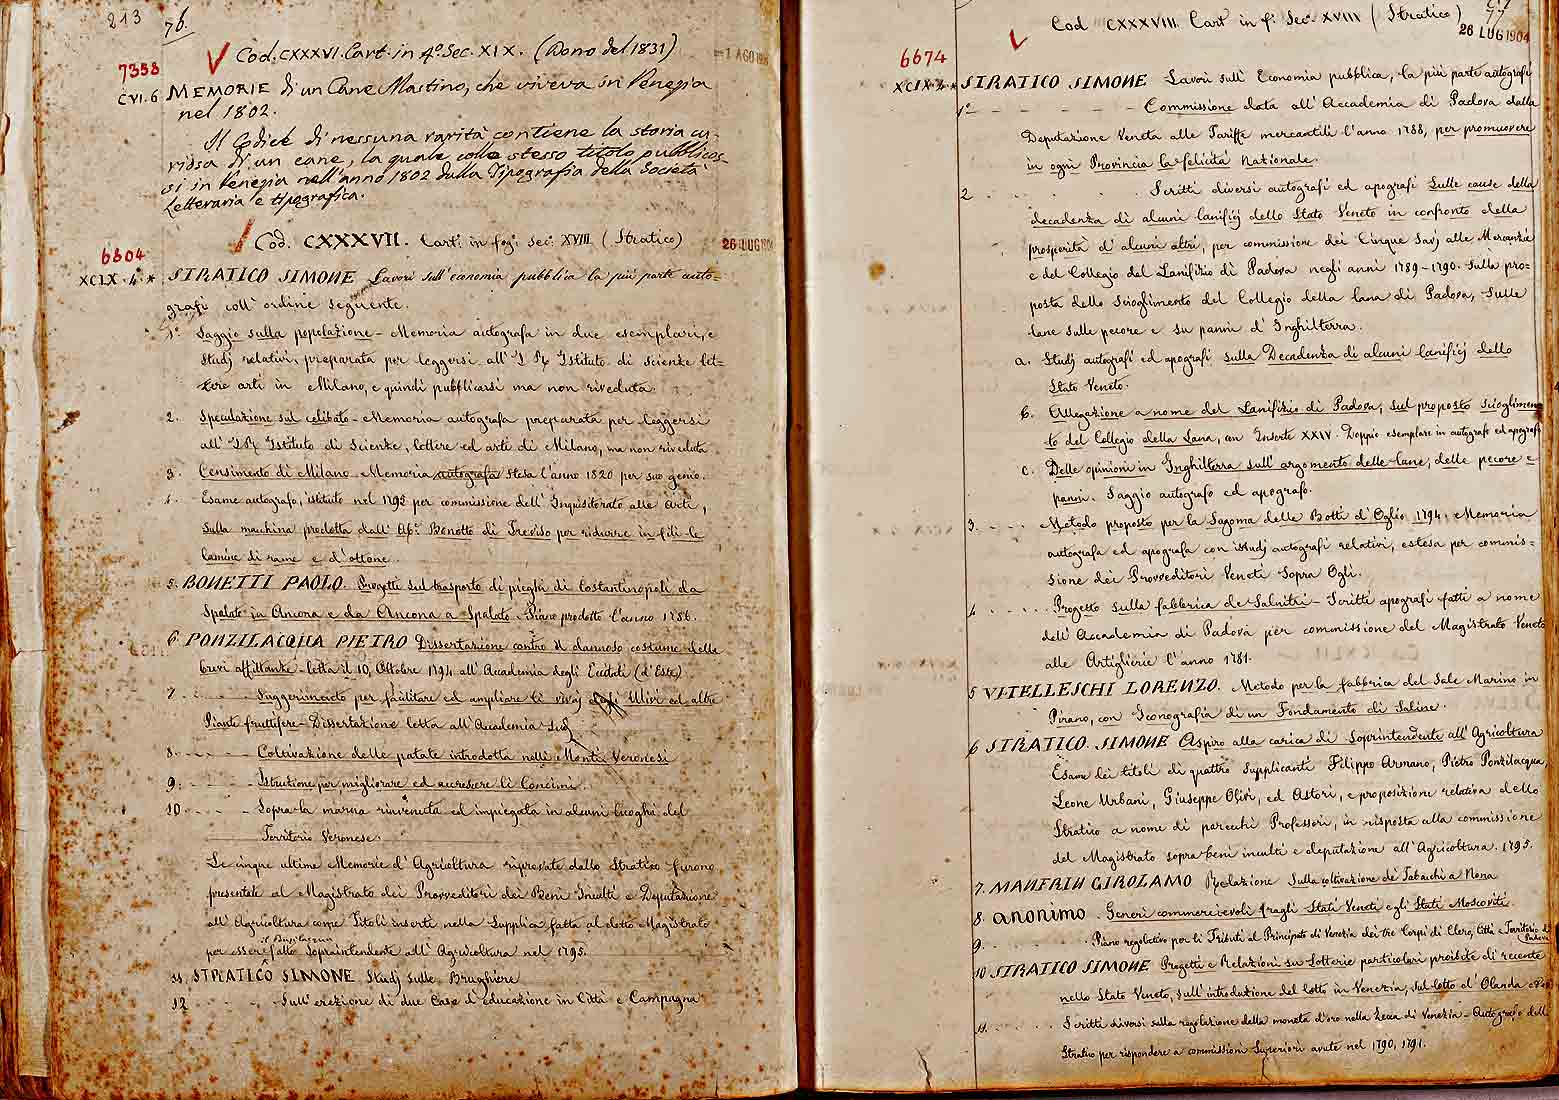 213
76.
Cod. CXXXVI. Cart. in 4.º Sec. XIX. (Dono del 1831)
7358
CVI.6 MEMORIE di un Cane Mastino, che viveva in Venezia
nel 1802.
Il Codice di nessuna rarità contiene la storia cu-
riosa di un cane, la quale collo stesso titolo pubblicos-
si in Venezia nell'anno 1802 dalla Tipografia della Società
Letteraria e tipografica.
Cod. CXXXVII. Cart. in fog. Sec. XVIII (Stratico) 26 LUG 1904
6804
XCIX.4.* STRATICO SIMONE Lavori sull'economia pubblica la più parte auto=
grafi coll'ordine seguente.
1º Saggio sulla popolazione - Memoria autografa in due esemplari, e
Studj relativi, preparata per leggersi all'I. R. Istituto di Scienze let=
tere arti in Milano, e quindi pubblicarsi ma non riveduta.
2. Speculazione sul celibato - Memoria autografa preparata per leggersi
all'I. R. Istituto di Scienze, lettere ed arti di Milano, ma non riveduta
3. Censimento di Milano. Memoria autografa stesa l'anno 1820 per suo genio.
4. Esame autografo, istituto nel 1792 per commissione dell'Inquisitorato alle Arti,
sulla macchina prodotta dall'Ab.e Bonotto di Treviso per ridurre in fili le
lamine di rame e d'ottone.
5. BONETTI PAOLO. Progetti sul trasporto di pieghi di Costantinopoli da
Spalato in Ancona e da Ancona a Spalato - Piano prodotto l'anno 1786.
6. PONZILACQUA PIETRO Dissertazione contro il dannoso costume delle
brevi affittanze - letta il 10, Ottobre 1794 all'Accademia degli Eccitati (d'Este).
7. Suggerimento per facilitare ed ampliare li vivaj degli Ulivi ed altre
Piante fruttifere - Dissertazione letta all'Accademia Sud.
8. Coltivazione delle patate introdotta nelli Monti Veronesi
9. Istruzione per migliorare ed accrescere li Concimi.
10 Sopra la marna rinvenuta ed impiegata in alcuni luoghi del
Territorio Veronese.
Le cinque ultime Memorie d'Agricoltura riprovate dallo Stratico furono
presentate al Magistrato dei Provveditori dei Beni Inculti e Deputazione
all'Agricoltura come Titoli inserti nella Supplica fatta al detto Magistrato
per essere fatto Sopraintendente all'Agricoltura nel 1795.
11. STRATICO SIMONE Studj sulle Brughiere
12 Sull'erezione di due Case d'educazione in Città e Campagna
77
Cod CXXXVIII Cart in f.º Sec. XVIII (Stratico)
26 LUG 1904
6674
STRATICO SIMONE Lavori sull'Economia pubblica, la più parte autografi
1º Commissione data all'Accademia di Padova dalla
Deputazione Veneta alle Tariffe mercantili l'anno 1788, per promuovere
in ogni Provincia la felicità Nazionale.
2 Scritti diversi autografi ed apografi sulle cause della
decadenza di alcuni lanificj dello Stato Veneto in confronto della
prosperità d'alcuni altri, per commissione dei Cinque Savj alle Mercanzie
e del Collegio del Lanifizio di Padova negli anni 1789-1790. Sulla pro-
posta dello scioglimento del Collegio della lana di Padova, Sulle
lane sulle pecore e su panni d'Inghilterra.
a. Studj autografi ed apografi sulla Decadenza di alcuni lanificj dello
Stato Veneto.
b. Allegazione a nome del Lanifizio di Padova, sul proposto sciogliemen
to del Collegio della Lana, con Inserte XXIV. Doppio esemplare in autografo ed apografo
c. Delle opinioni in Inghilterra sull'argomento delle lane, delle pecore e
panni. Saggio autografo ed apografo.
3. Metodo proposto per la Sagoma delle Botti d'Oglio 1794. Memoria
autografa ed apografa con istudj autografi relativi, estesa per commis=
sione dei Provveditori Veneti Sopra Ogli.
4. Progetto sulla fabbrica de Salnitri - Scritti apografi fatti a nome
dell'Accademia di Padova per commissione del Magistrato Veneto
alle Artiglierie l'anno 1781.
5 VITELLESCHI LORENZO. Metodo per la fabbrica del Sale Marino in
Pirano, con Iconografia di un Fondamento di Saline.
6 STRATICO SIMONE Aspiro alla carica di Soprintendente all'Agricoltura
Esame dei titoli di quattro supplicanti Filippo Armano, Pietro Ponzilacqua,
Leone Urbani, Giuseppe Olivi, ed Astori, e proposizione relativa dello
Stratico a nome di parecchi Professori, in risposta alla commissione
del Magistrato sopra beni inculti e deputazione all'Agricoltura. 1795.
7. MANFRIN GIROLAMO Relazione Sulla coltivazione de' Tabacchi a Nona
8 ANONIMO. Generi commercievoli fragli Stati Veneti e gli Stati Moscoviti.
9. Piano regolativo per li Tributi al Principato di Venezia dei tre Corpi di Clero, Città e Territorio di
Padova
10 STRATICO SIMONE Progetti e Relazioni su Lotterie particolari proibite di recente
nello Stato Veneto, sull'introduzione del lotto in Venezia, sul lotto d'Olanda
11. Scritti diversi sulla regolazione della moneta d'oro nella Zecca di Venezia - Autografo dello
Stratico per rispondere a commissioni Superiori avute nel 1790, 1791.